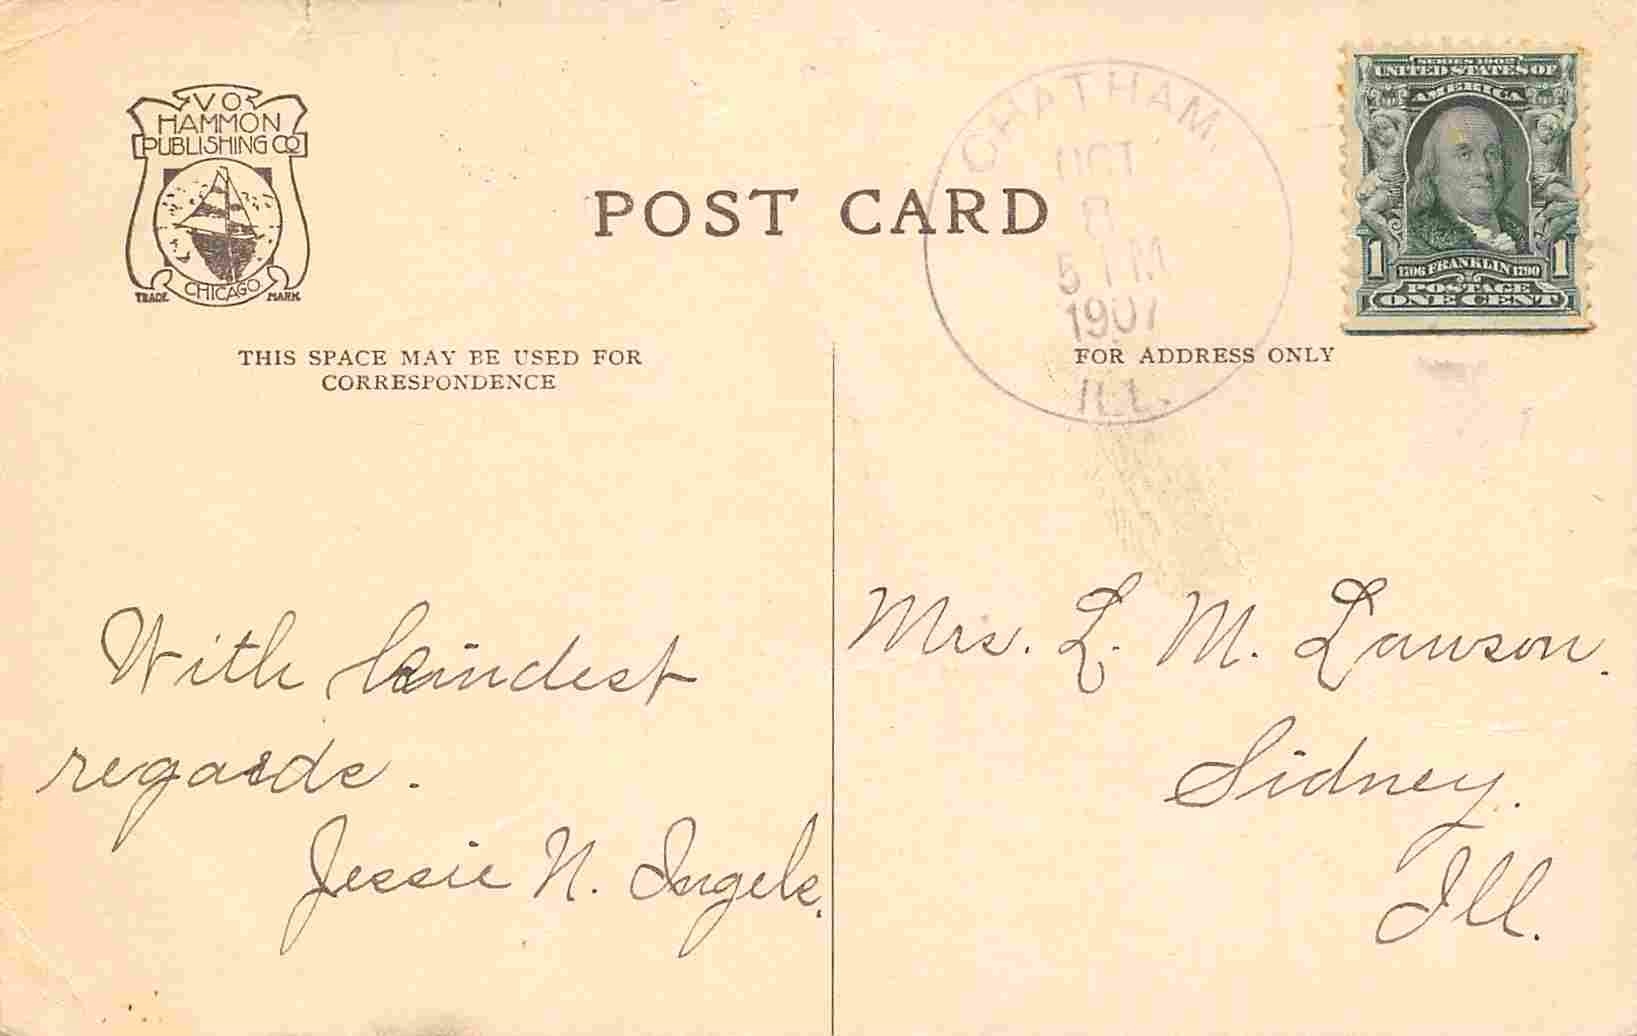 V O
HAMMON
PUBLISHING CO
CHICAGO
TRADE MARK
POST CARD
CHATHAM,
OCT
8
5 PM
1907
ILL.
SERIES 1902
UNITED STATES OF
AMERICA
1 1706 FRANKLIN 1790 1
POSTAGE
ONE CENT
THIS SPACE MAY BE USED FOR
CORRESPONDENCE
FOR ADDRESS ONLY
With kindest
regards.
Jessie N. Ingels.
Mrs. L. M. Lawson.
Sidney.
Ill.